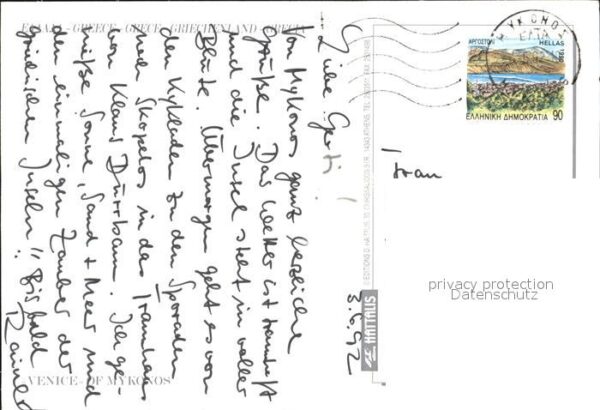 ΕΛΛΑΣ - GREECE - GRÈCE - GRIECHENLAND - GRECIA
3.6.92
Liebe Gerti!
Von Mykonos ganz herzliche
Grüße. Das Wetter ist traumhaft
und die Insel steht in voller
Blüte. Übermorgen geht es von
den Kykladen zu den Sporaden
nach Skopelos in das Traumhaus
von Klaus. Ich ge-
nieße Sonne, Sand + Meer und
den einmaligen Zauber der
griechischen Inseln!! Bis bald
Rainer
VENICE - OF MYKONOS
HAITALIS
ΜΥΚΟΝΟΣ
ΑΡΓΟΣΤΟΛΙ
HELLAS
ΕΛΛΗΝΙΚΗ ΔΗΜΟΚΡΑΤΙΑ 90
Frau
privacy protection
Datenschutz